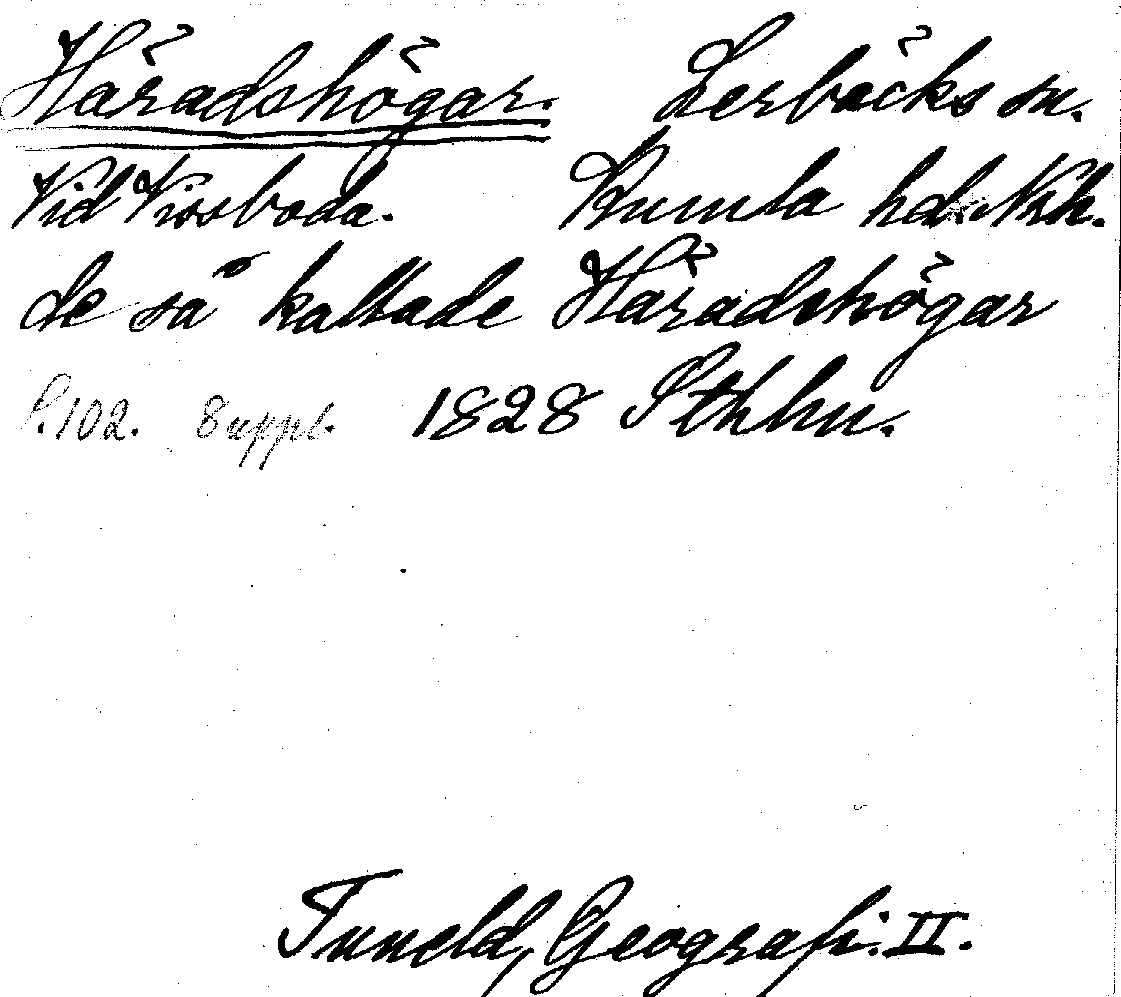 Häradshögar. Lerbäcks sn.
Vid Vissboda. Kumla hd. Nke.
de så kallade Häradshögar
S. 102. 8 uppl. 1828 Sthlm.
Tuneld, Geografi. II.